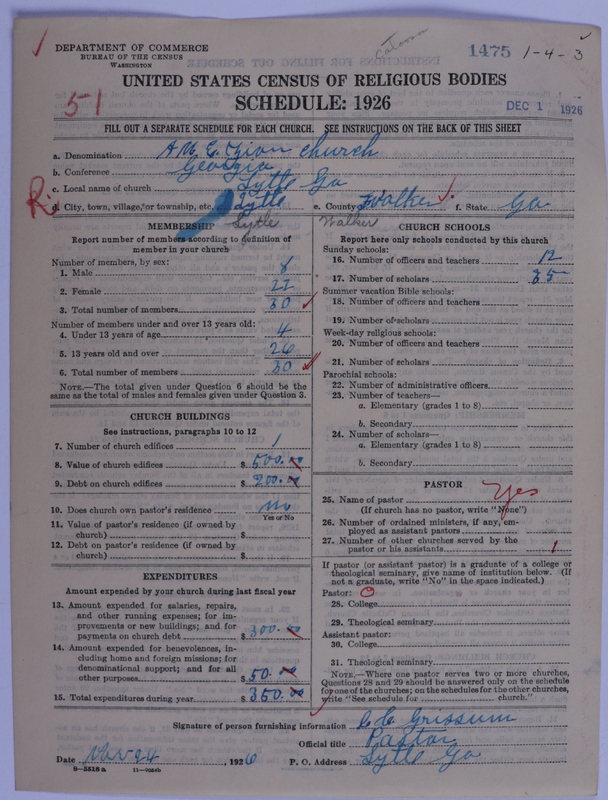 DEPARTMENT OF COMMERCE
BUREAU OF THE CENSUS
WASHINGTON
Catoosa
1475 1-4-3
UNITED STATES CENSUS OF RELIGIOUS BODIES
51
SCHEDULE: 1926
DEC 1 1926
FILL OUT A SEPARATE SCHEDULE FOR EACH CHURCH. SEE INSTRUCTIONS ON THE BACK OF THIS SHEET
a. Denomination A M E Zion church
b. Conference Georgia
c. Local name of church Lytle Ga
R
d. City, town, village, or township, etc. Lytle e. County Walker f. State Ga
Lytle Walker
MEMBERSHIP
Report number of members according to definition of
member in your church
Number of members, by sex:
1. Male 8
2. Female 22
3. Total number of members 30
Number of members under and over 13 years old:
4. Under 13 years of age 4
5. 13 years old and over 26
6. Total number of members 30
NOTE.—The total given under Question 6 should be the
same as the total of males and females given under Question 3.
CHURCH BUILDINGS
See instructions, paragraphs 10 to 12
7. Number of church edifices 1
8. Value of church edifices $ 500.00
9. Debt on church edifices $ 200.00
10. Does church own pastor's residence? no
Yes or No
11. Value of pastor's residence (if owned by
church) $
12. Debt on pastor's residence (if owned by
church) $
EXPENDITURES
Amount expended by your church during last fiscal year
13. Amount expended for salaries, repairs,
and other running expenses; for im-
provements or new buildings; and for
payments on church debt $ 300.00
14. Amount expended for benevolences, in-
cluding home and foreign missions; for
denominational support; and for all
other purposes $ 50.00
15. Total expenditures during year $ 350.00
CHURCH SCHOOLS
Report here only schools conducted by this church
Sunday schools:
16. Number of officers and teachers 12
17. Number of scholars 35
Summer vacation Bible schools:
18. Number of officers and teachers
19. Number of scholars
Week-day religious schools:
20. Number of officers and teachers
21. Number of scholars
Parochial schools:
22. Number of administrative officers
23. Number of teachers—
a. Elementary (grades 1 to 8)
b. Secondary
24. Number of scholars—
a. Elementary (grades 1 to 8)
b. Secondary
PASTOR
25. Name of pastor Yes
(If church has no pastor, write "None")
26. Number of ordained ministers, if any, em-
ployed as assistant pastors
27. Number of other churches served by the
pastor or his assistants 1
If pastor (or assistant pastor) is a graduate of a college or
theological seminary, give name of institution below. (If
not a graduate, write "No" in the space indicated.)
Pastor: O
28. College
29. Theological seminary
Assistant pastor:
30. College
31. Theological seminary
NOTE.—Where one pastor serves two or more churches,
Questions 28 and 29 should be answered only on the schedule
for one of the churches; on the schedules for the other churches,
write "See schedule for church."
Signature of person furnishing information Grissum
Official title Pastor
Date Nov 24, 1926 P. O. Address Lytle Ga
8—5818 a 11—9024b